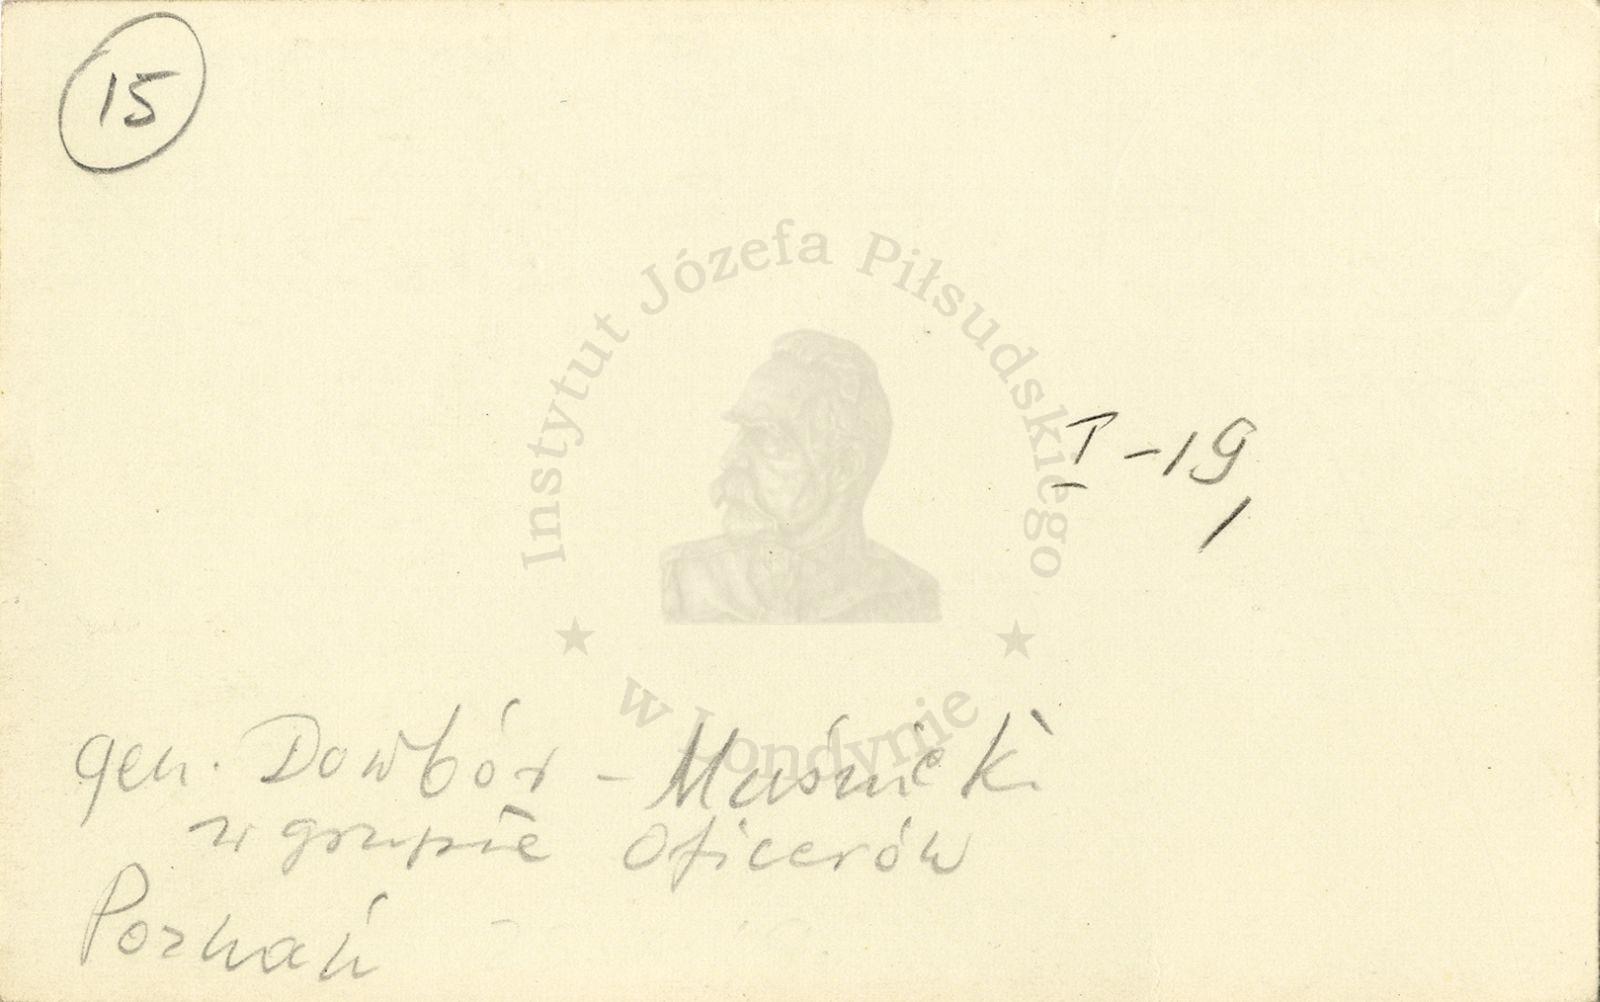 15
Instytut Józefa Piłsudskiego
w Londynie
I-19
gen. Dowbór - Muśnicki
w grupie oficerów
Poznań